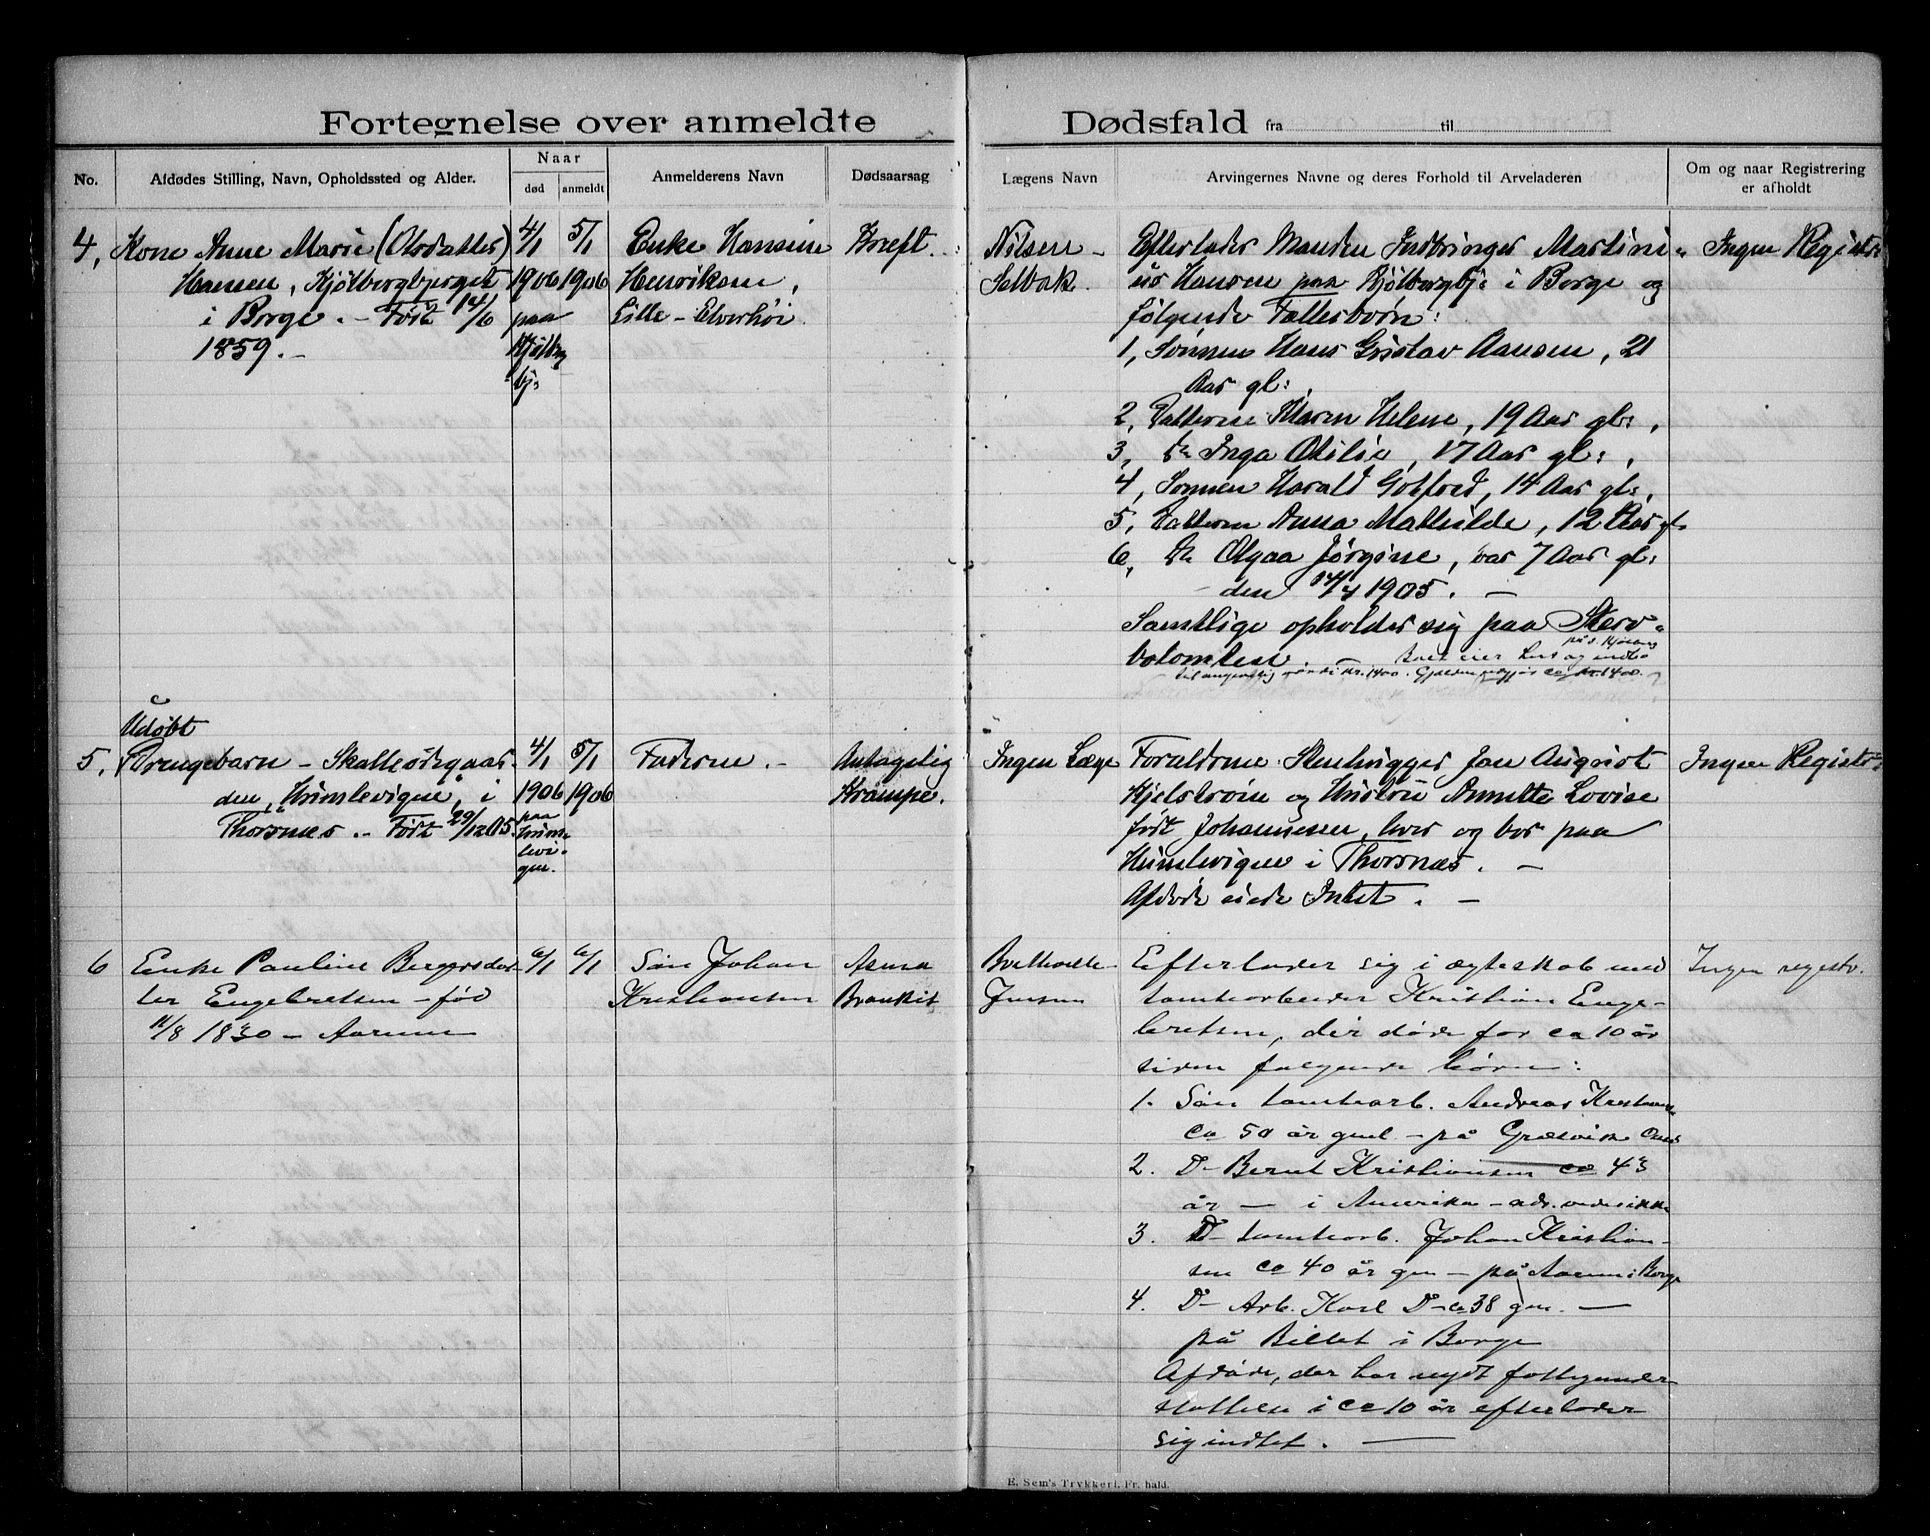 Fortegnelse over anmeldte
Dødsfald fra til
No.
Afdødes Stilling, Navn, Opholdssted og Alder.
Naar
død
anmeldt
Anmelderens Navn
Dødsaarsag
Lægens Navn
Arvingernes Navne og deres Forhold til Arveladeren
Om og naar Registrering
er afholdt
4, Kone Anne Marie (Olsdatter)
Hansen, Kjølbergbjerget
i Borge. - Født 14/6
1859. -
4/1
1906
paa
Kjølbg
bj:
5/1
1906
Enke Hansine
Henriksen,
Lille-Elverhøi
Kræft.
Nilsen -
Selbak.
Efterlader Manden Indbringer Martini-
us Hansen paa Kjølbergbj: i Borge og
følgende Fællesbørn:
1, Sønnen Hans Gustav Hansen, 21
Aar gl:,
2, Datteren Maren Helene, 19 Aar gl:,
3, Do Inga Otilie, 17 Aar gl:,
4, Sønnen Harald Gotfred, 14 Aar gl:,
5, Datteren Anna Mathilde, 12 Aar gl
6, Do Olgaa Jørgine, var 7 Aar gl:
den 14/4 1905. -
Samtlige opholder sig paa Sterv-
bolomtest. - Boet eier hus og indbo
kr. 1400. Gjælden udgjør ca kr. 1400.
Ingen Registr:
Udøbt
5, Drengebarn - Skalleødegaar-
den, "Hunslevigne" i
Thorsnæs. - Født 29/12 05.
4/1
1906
paa
Huns-
levi-
gne.
5/1
1906
Faderen. -
Antagelig
Krampe.
Ingen Læge
Forældrene: Stenhugger Jon August
Kjelstrøm og Hustru Annette Lovise
født Johannessen, hver og bor paa
Hunslevigne i Thorsnæs. -
Afdøde eiede Intet. -
Ingen Registr:
6 Enke Pauline Bergersdat-
ter Engebretsen - fød
11/8 1830 - Aarum
6/1
6/1
Søn Johan
Kristiansen
Asma
Bronkit
Jensen
Efterlader sig i ægteskab med
tomtearbeider Kristian Enge-
bretsen, der døde for ca 10 år
siden følgende børn:
1. Søn tomtearb. Andreas Kristians
ca 50 år gml - på Græsvik Onsø
2. Do Bernt Kristiansen ca 43
år - i Amerika - adr. vides ikke
3. Do tomtearb. Johan Kristian-
sen ca 40 år gm - på Aarum i Borge
4. Do Arb. Karl Do ca 38 gm. -
på Billet i Borge
Afdøde, der har nydt fattigunder-
støttelse i ca 10 år efterlader
sig indtet. -
Ingen registr.
E. Sem's Trykkeri, Fr. hald.